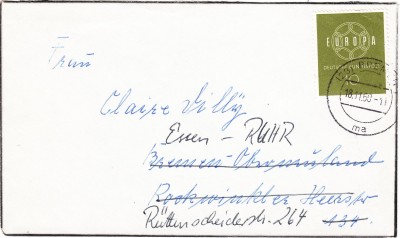 EUROPA
DEUTSCHE BUNDESPOST
10
Frau
Claire Dilly
Essen - RUHR
Bremen-Oberneuland
Rockwinkler Heerstr
Rüttenscheiderstr. 264 134.